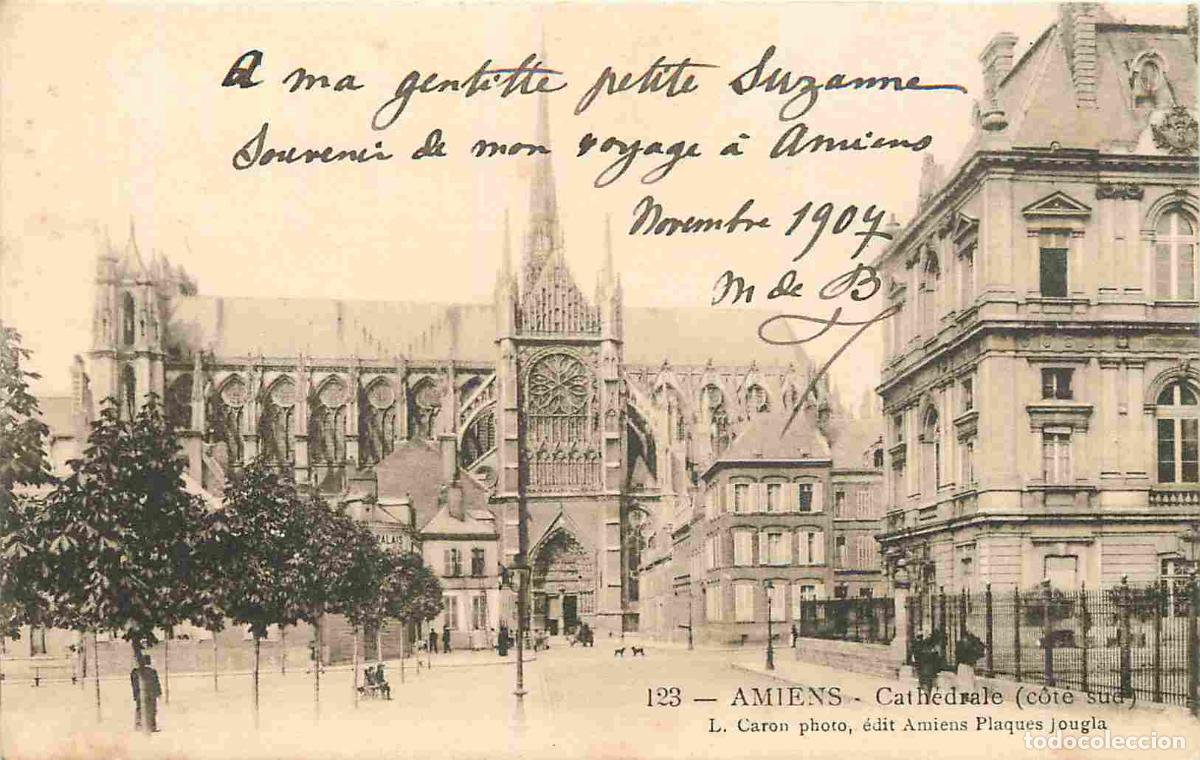 A ma gentille petite Suzanne
Souvenir de mon voyage à Amiens
Novembre 1907
M de B
ALAIS
123 — AMIENS - Cathédrale (côté sud)
L. Caron photo, édit Amiens Plaques jougla
todocoleccion